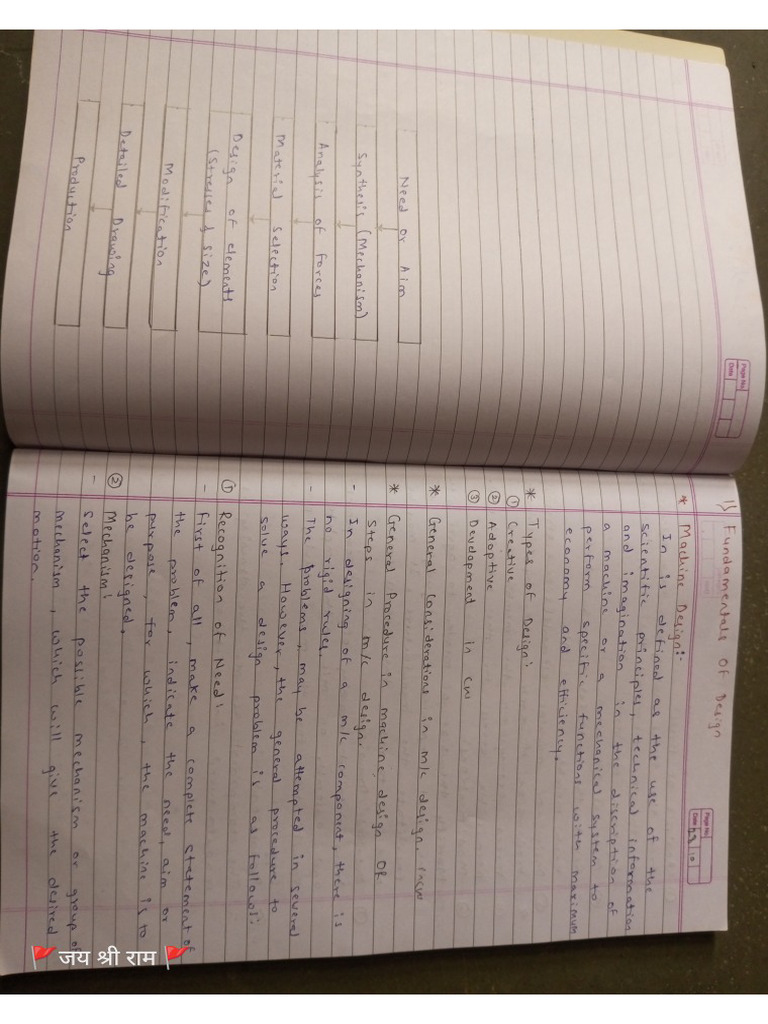 Page No.
Date
Need or Aim
Synthesis (Mechanism)
Analysis of forces
Material selection
Design of elements
(Stresses & Size)
Modification
Detailed Drawing
Production
Page No.
Date
1) Fundamentals Of Design
* Machine Design:-
In is defined as the use of the
scientific principles, technical information
and imagination in the discription of
a machine or a mechanical system to
perform specific functions with maximum
economy and efficiency.
* Types of Design:
① Creative
② Adoptive
③ Development in cw
* General Considerations in m/c design. incw
* General Procedure in machine design OR
Steps in m/c design.
- In designing of a m/c component, there is
no rigid rules.
- The problems, may be attempted in several
ways. However, the general procedure to
solve a design problem is as follows:
① Recognition of Need:
- First of all, make a complete statement of
the problem, indicate the need, aim or
purpose, for which, the machine is to
be designed.
② Mechanism:
- select the possible mechanism or group of
mechanism, which will give the desired
motion.
🚩 जय श्री राम 🚩